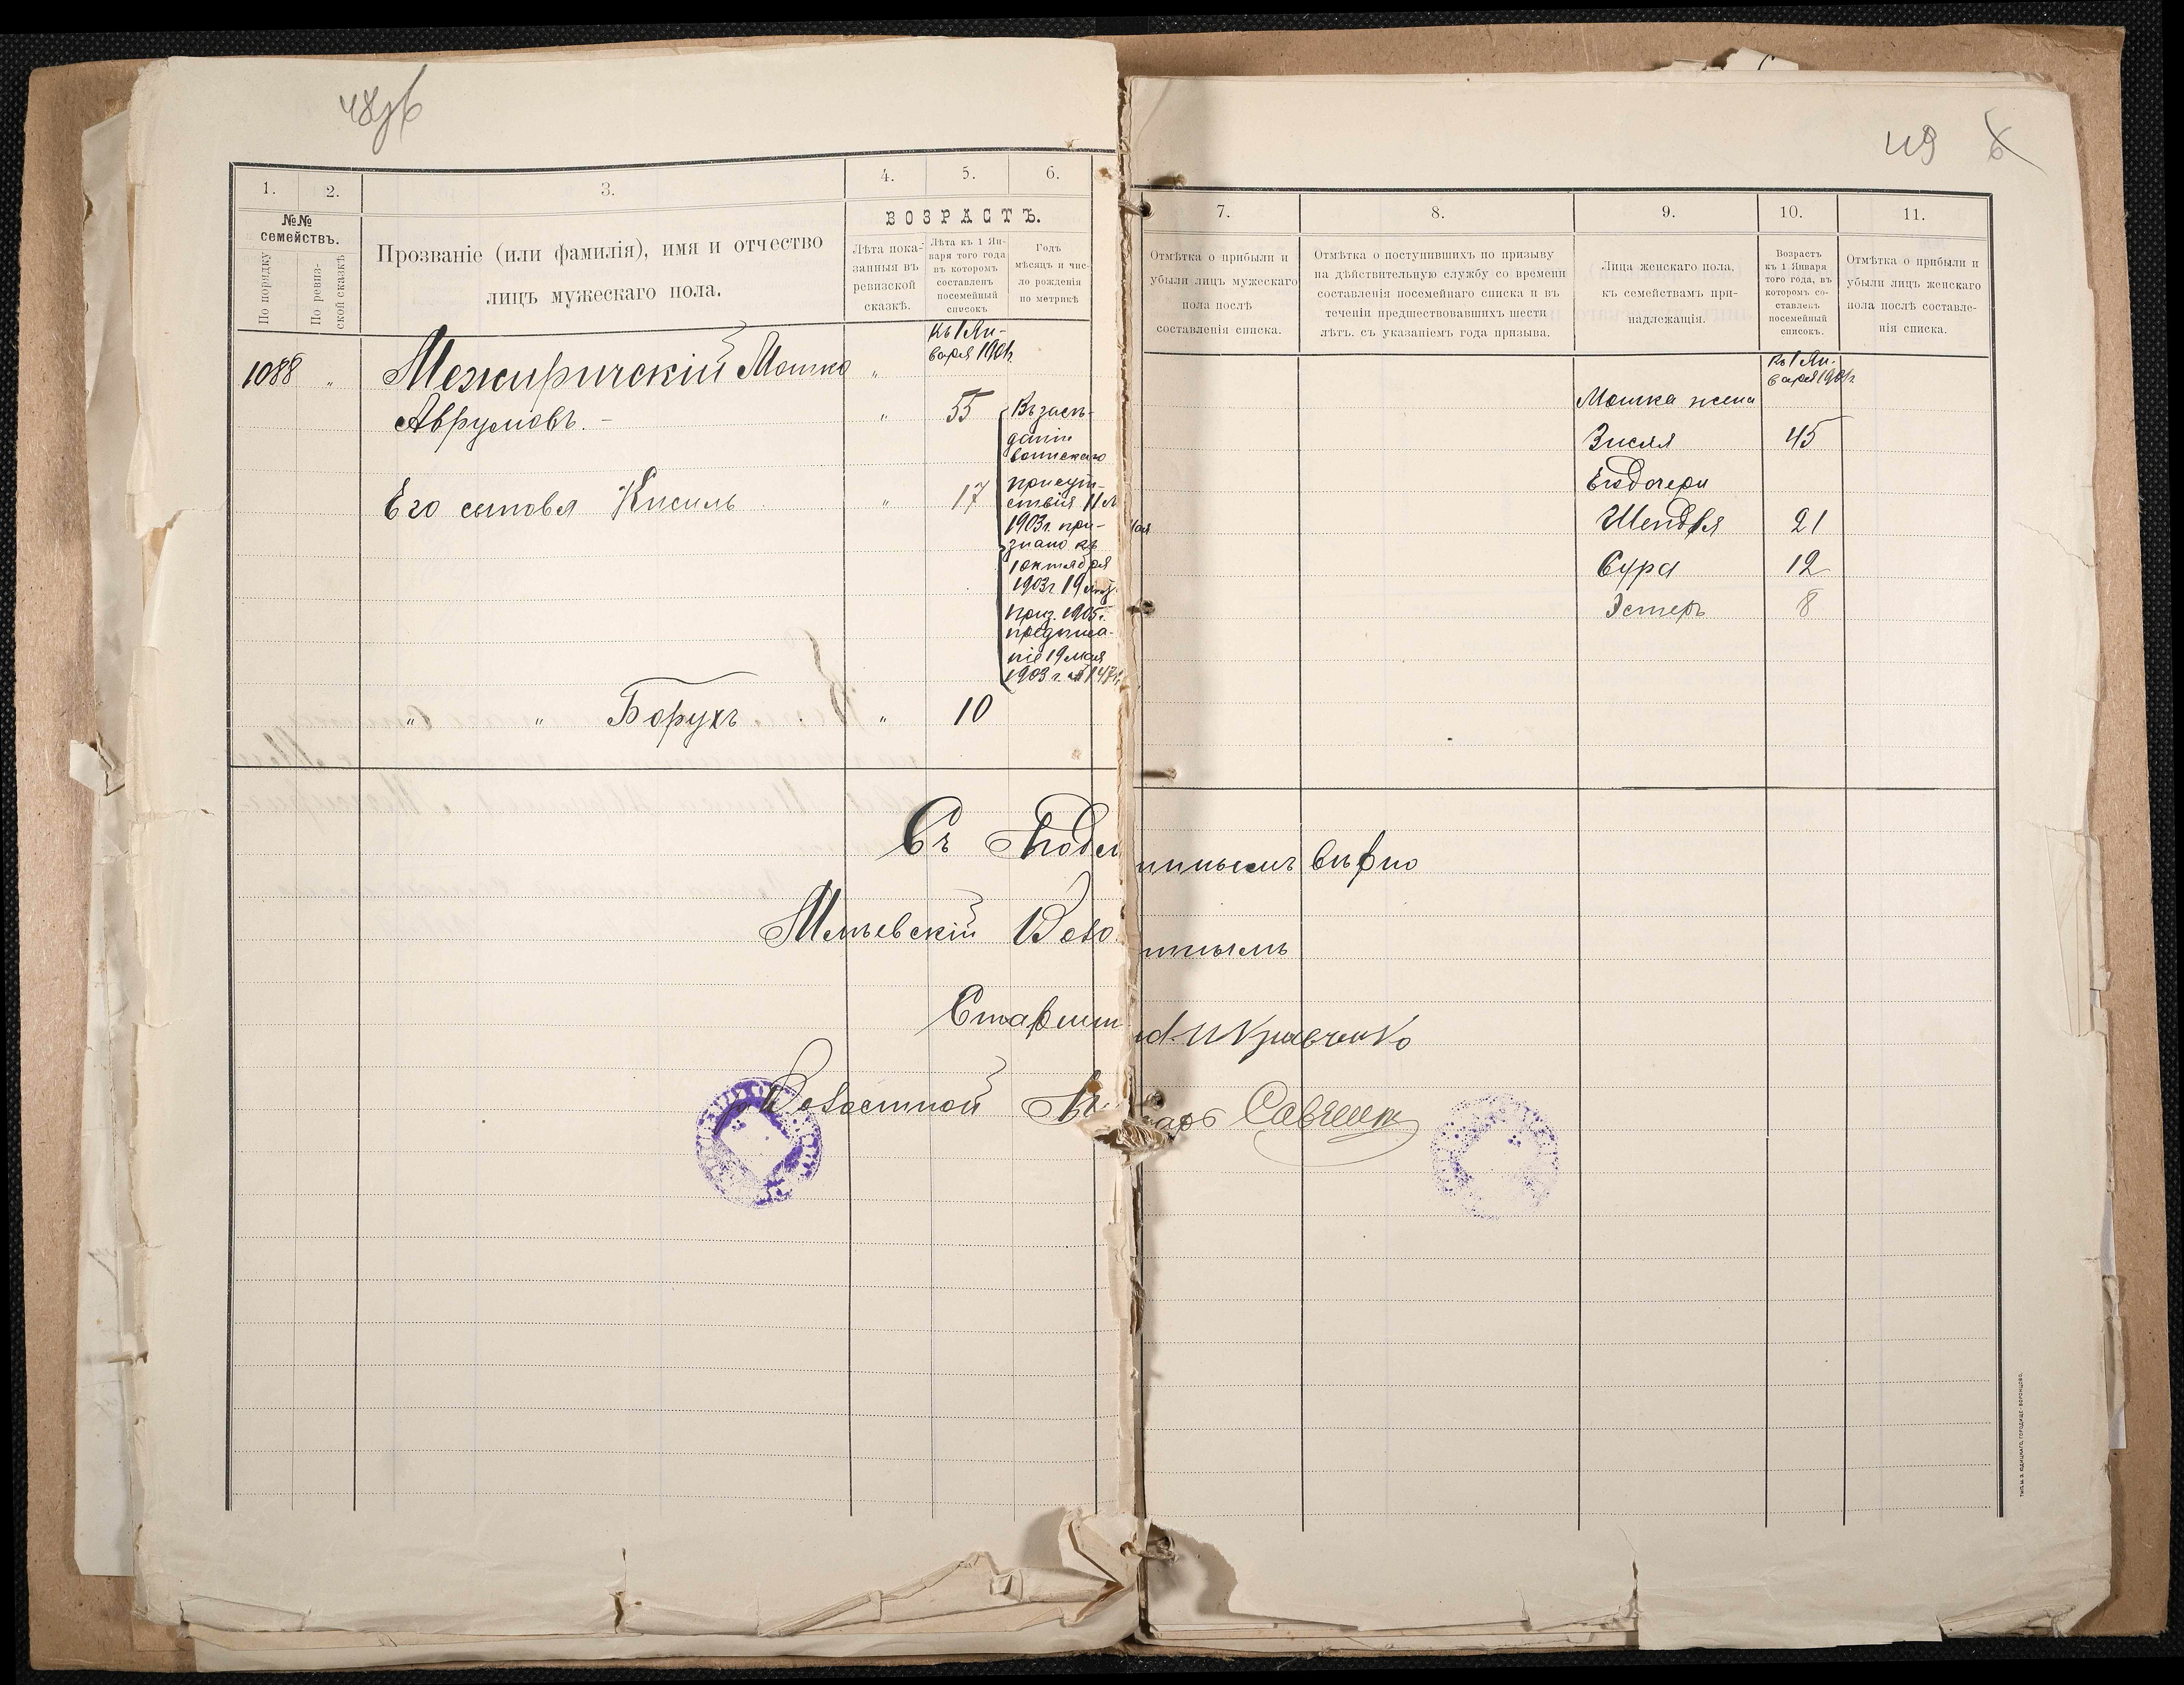 48об
1. 2. 3. 4. 5. 6.
№№ семействъ.
По порядку
По ревизской сказкѣ
Прозваніе (или фамилія), имя и отчество
лицъ мужескаго пола.
ВОЗРАСТЪ.
Лѣта пока-
занныя въ
ревизской
сказкѣ.
Лѣта къ 1 Ян-
варя того года
въ которомъ
составленъ
посемейный
списокъ
Годъ
мѣсяцъ и чис-
ло рожденія
по метрикѣ
къ 1 Ян-
варя 1901г.
1088 „ Межиричскій Мошко „
Аврумовъ. - „ 55
Его сыновья Кисиль „ 17
Въ засѣ-
даніи
воинскаго
присут-
ствія 11 Мая
1903г. при-
знано къ
1 октября
1903г 19 лѣтъ.
приз. 1905г.
предписа-
ніе 19 мая
1903 г. № 147
„ „ Борухъ „ 10
49 6
7. 8. 9. 10. 11.
Отмѣтка о прибыли и
убыли лицъ мужескаго
пола послѣ
составленія списка.
Отмѣтка о поступившихъ по призыву
на дѣйствительную службу со времени
составленія посемейнаго списка и въ
теченіи предшествовавшихъ шести
лѣтъ. съ указаніемъ года призыва.
Лица женскаго пола,
къ семействамъ при-
надлежащія.
Возрастъ
къ 1 Января
того года, въ
которомъ со-
ставленъ
посемейный
списокъ.
Отмѣтка о прибыли и
убыли лицъ женскаго
пола послѣ составле-
нія списка.
къ 1 Ян-
варя 1901г.
Мошка жена
Зисля 45
Его дочери
Шендля 21
Сура 12
Эстеръ 8
Съ Подлиннымъ вѣрно
Мліевскій Волостнымъ
Старшина И Кравченко
Волостной Писарь
Тип. М. Э. Юдицкаго, Городище-Воронцово.